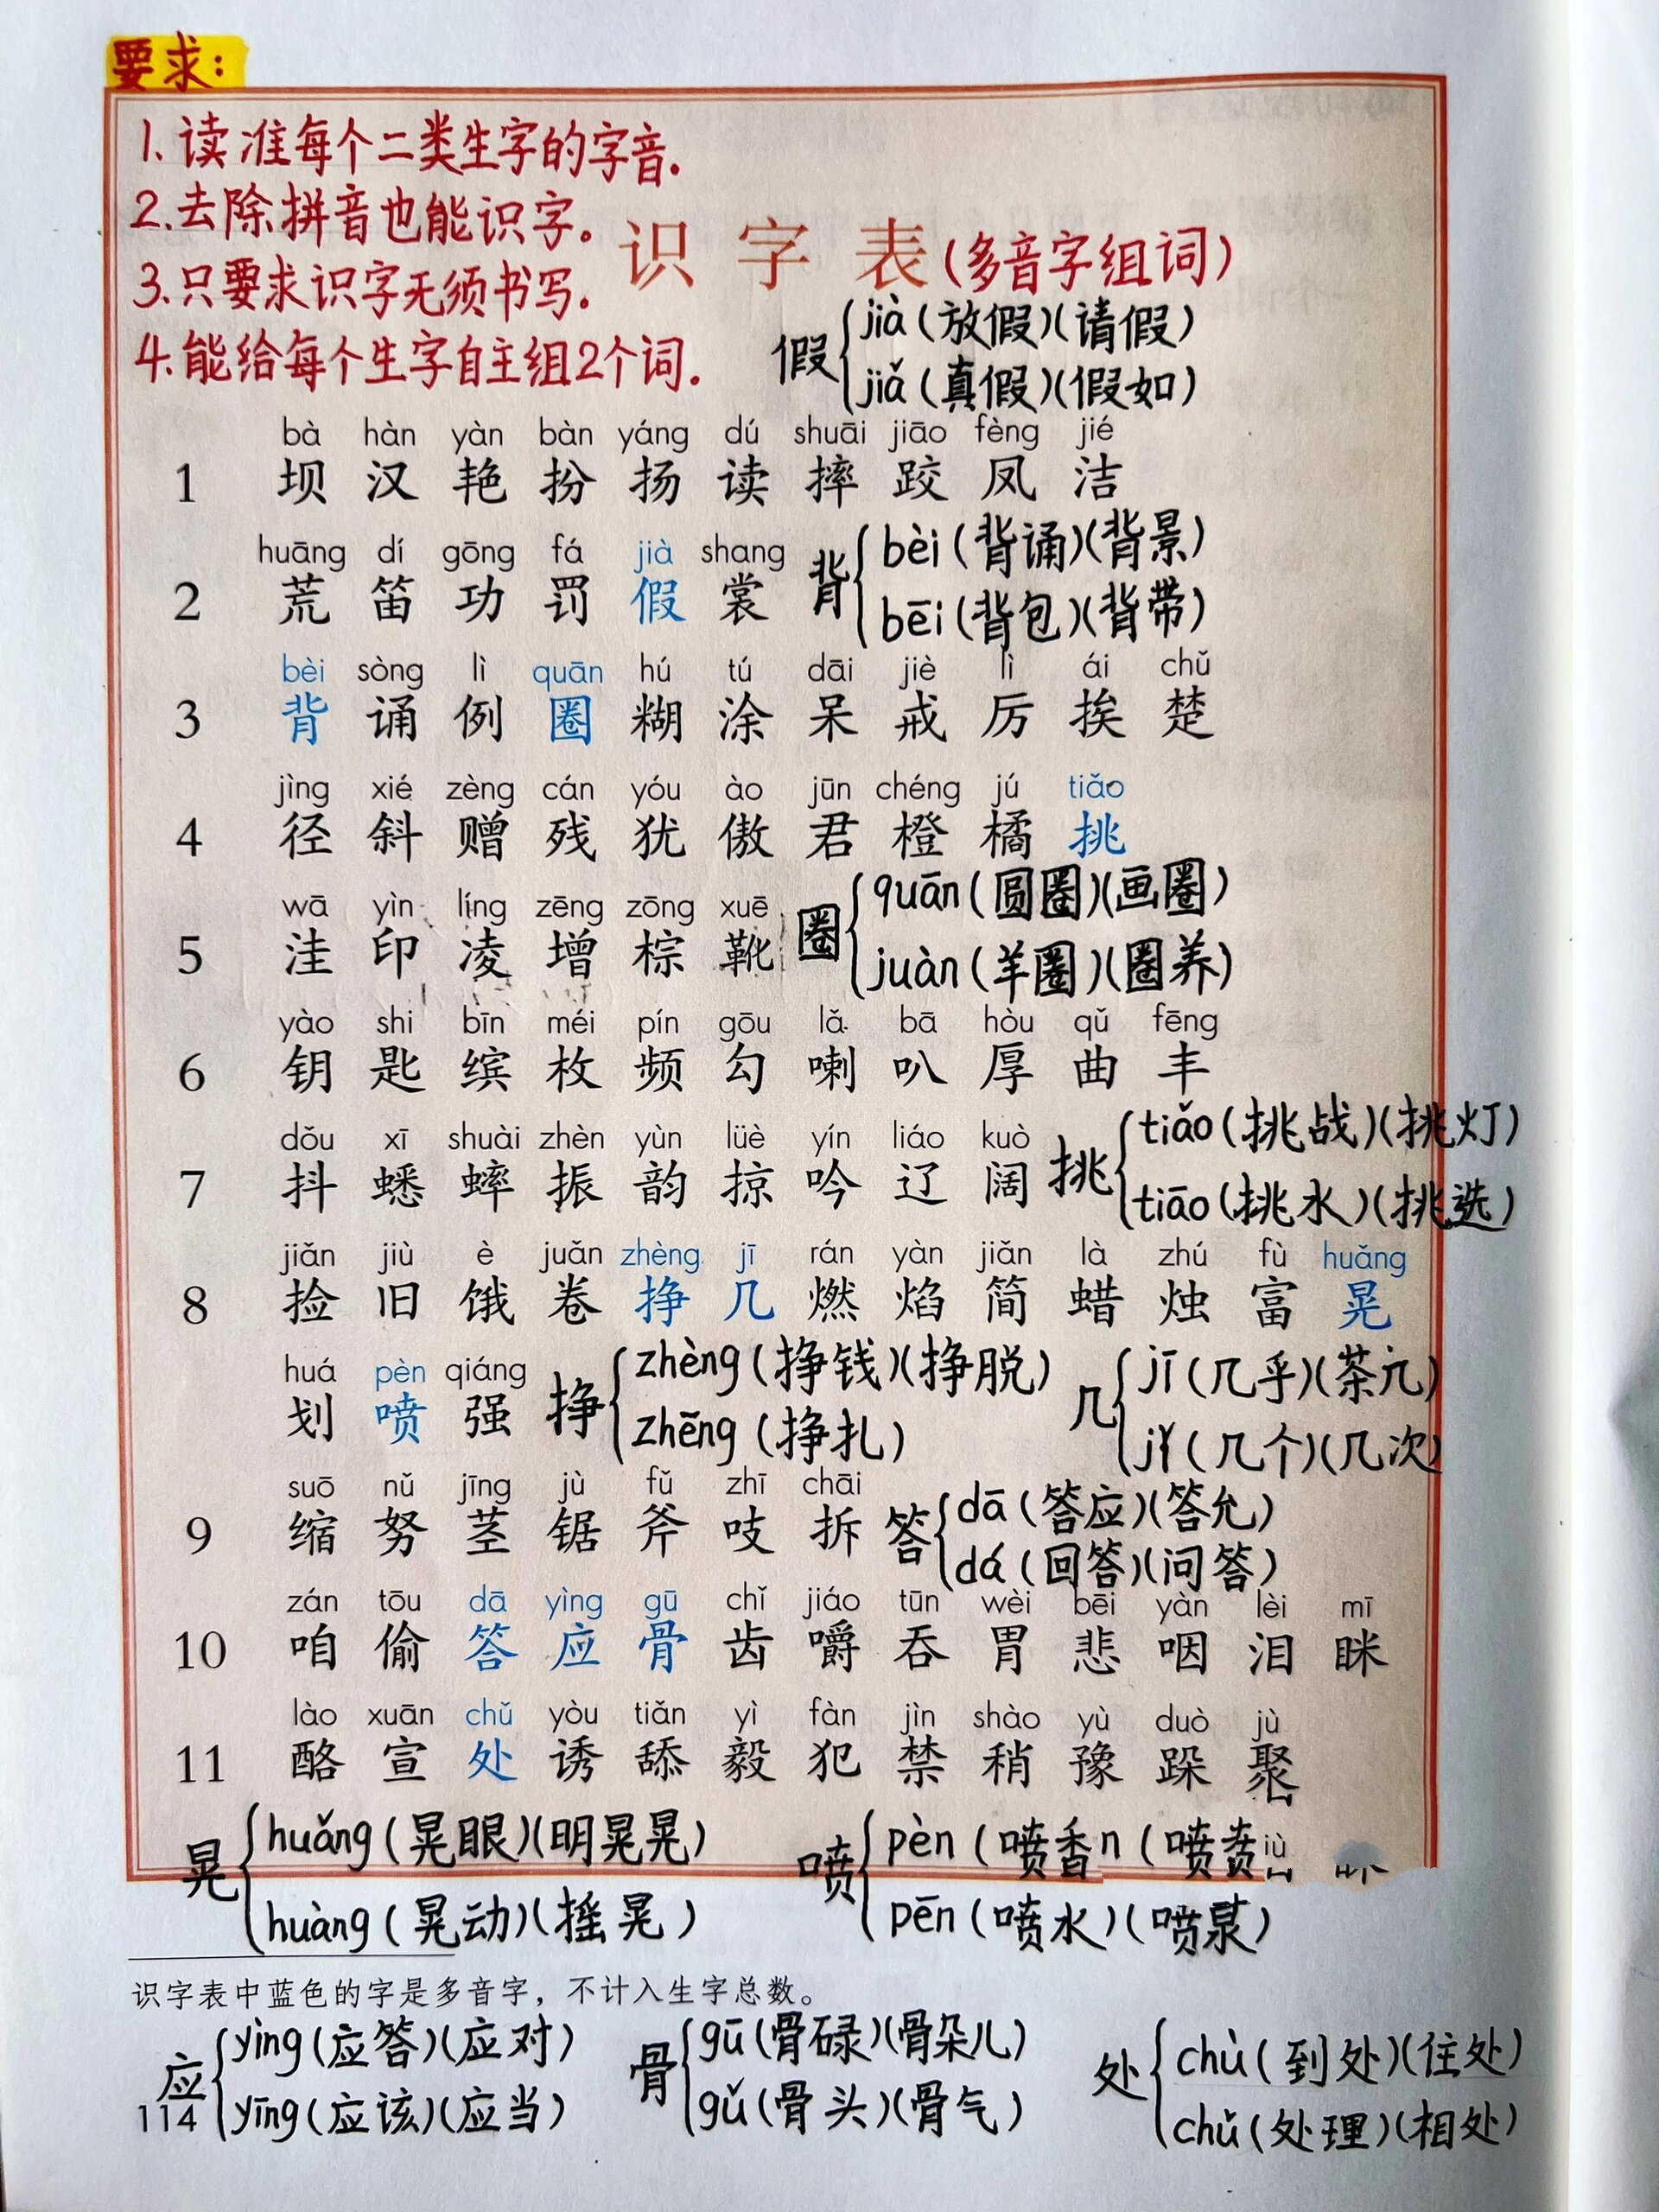 要求:
1.读准每个二类生字的字音.
2.去除拼音也能识字。
识字表(多音字组词)
3.只要求识字无须书写.
4.能给每个生字自主组2个词.
假
jià(放假)(请假)
jiǎ(真假)(假如)
bà hàn yàn bàn yáng dú shuāi jiāo fèng jié
1 坝 汉 艳 扮 扬 读 摔 跤 凤 洁
huāng dí gōng fá jià shang
2 荒 笛 功 罚 假 裳
背
bèi(背诵)(背景)
bēi(背包)(背带)
bèi sòng lì quān hú tú dāi jiè lì ái chǔ
3 背 诵 例 圈 糊 涂 呆 戒 厉 挨 楚
jìng xié zèng cán yóu ào jūn chéng jú tiǎo
4 径 斜 赠 残 犹 傲 君 橙 橘 挑
wā yìn líng zēng zōng xuē
5 洼 印 凌 增 棕 靴
圈
quān(圆圈)(画圈)
juàn(羊圈)(圈养)
yào shi bīn méi pín gōu lǎ bā hòu qǔ fēng
6 钥 匙 缤 枚 频 勾 喇 叭 厚 曲 丰
dǒu xī shuài zhèn yùn lüè yín liáo kuò
7 抖 蟋 蟀 振 韵 掠 吟 辽 阔
挑
tiǎo(挑战)(挑灯)
tiāo(挑水)(挑选)
jiǎn jiù è juǎn zhèng jī rán yàn jiǎn là zhú fù huǎng
8 捡 旧 饿 卷 挣 几 燃 焰 简 蜡 烛 富 晃
huá pèn qiáng
划 喷 强
挣
zhèng(挣钱)(挣脱)
zhēng(挣扎)
几
jī(几乎)(茶几)
jǐ(几个)(几次)
suō nǔ jīng jù fǔ zhī chāi
9 缩 努 茎 锯 斧 吱 拆
答
dā(答应)(答允)
dá(回答)(问答)
zán tōu dā yìng gū chǐ jiáo tūn wèi bēi yàn lèi mī
10 咱 偷 答 应 骨 齿 嚼 吞 胃 悲 咽 泪 眯
lào xuān chǔ yòu tiǎn yì fàn jìn shào yù duò jù
11 酪 宣 处 诱 舔 毅 犯 禁 稍 豫 跺 聚
晃
huǎng(晃眼)(明晃晃)
huàng(晃动)(摇晃)
喷
pèn(喷香n(喷
pēn(喷水)(喷泉)
识字表中蓝色的字是多音字，不计入生字总数。
应
yìng(应答)(应对)
yīng(应该)(应当)
骨
gū(骨碌)(骨朵儿)
gǔ(骨头)(骨气)
处
chù(到处)(住处)
chǔ(处理)(相处)
114